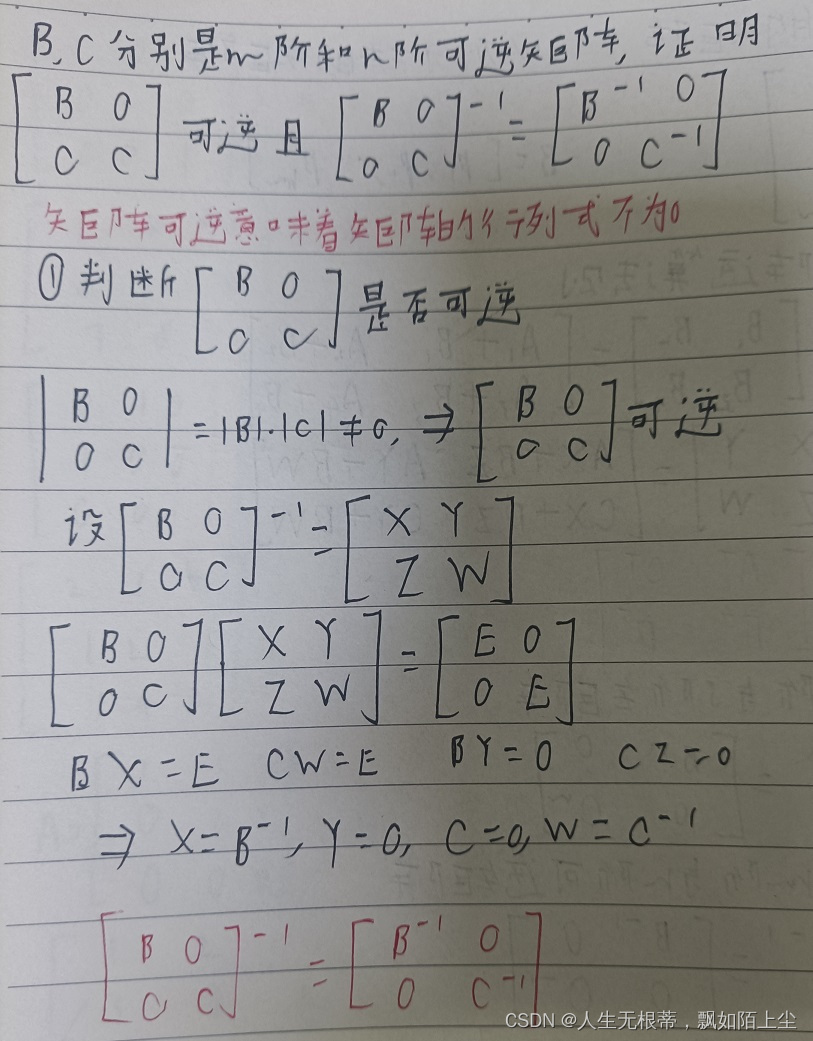 B, C分别是m阶和n阶可逆矩阵, 证明
[B 0
C C] 可逆且 [B 0
0 C]⁻¹ = [B⁻¹ 0
0 C⁻¹]
矩阵可逆意味着矩阵的行列式不为0
① 判断 [B 0
0 C] 是否可逆
|B 0
0 C| = |B|·|C| ≠ 0, ⇒ [B 0
0 C] 可逆
设 [B 0
0 C]⁻¹ = [X Y
Z W]
[B 0
0 C] [X Y
Z W] = [E 0
0 E]
BX = E CW = E BY = 0 CZ = 0
⇒ X = B⁻¹, Y = 0, C = 0, W = C⁻¹
[B 0
0 C]⁻¹ = [B⁻¹ 0
0 C⁻¹]
CSDN @人生无根蒂，飘如陌上尘